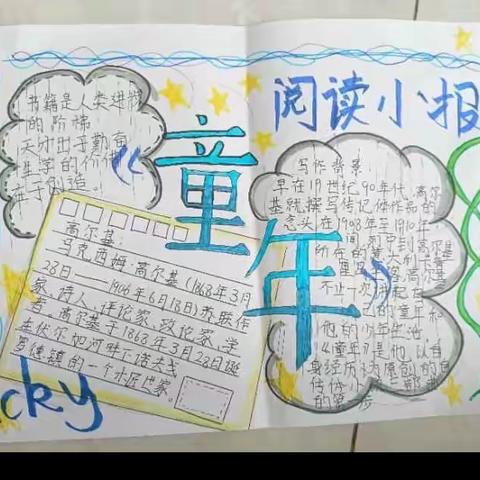 阅读小报
《童年》
书籍是人类进
的阶梯
天才出于勤奋
生学的价
在于创造。
高尔基:
马克西姆·高尔基(1868年3月
28日——1906年6月18日)苏联作
家、诗人、评论家、政论家、学
者。高尔基于1868年3月28日诞
生伏尔加河畔
罗德镇的一个木匠世家。
写作背景
早在19世纪90年代,高尔
基就撰写传记体作品的
念头在1908年至1910年
间,列宁到高尔基
所在的意大利卡
高尔基
不止一次
的童年和
他的少年生活,
《童年》是他以自
身经历为原创的自
传体小
的第一步
cky